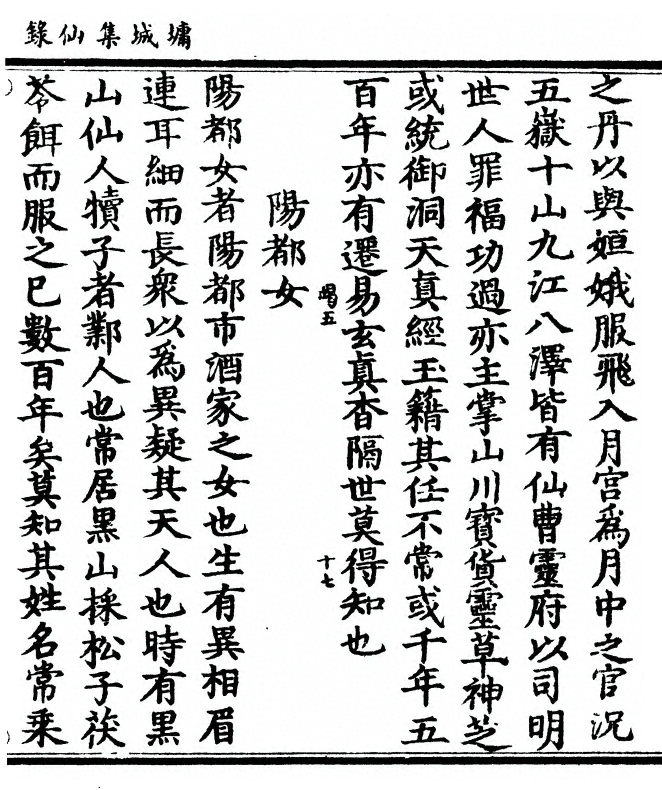 墉城集仙錄
之丹以與姮娥服飛入月宮為月中之官况
五嶽十山九江八澤皆有仙曹靈府以司明
世人罪福功過亦主掌山川寶貨靈草神芝
或統御洞天真經玉籍其任不常或千年五
百年亦有遷易玄真杳隔世莫得知也
竭五
十七
陽都女
陽都女者陽都市酒家之女也生有異相眉
連耳細而長衆以為異疑其天人也時有黑
山仙人犢子者鄴人也常居黑山採松子茯
苓餌而服之已數百年矣莫知其姓名常乘